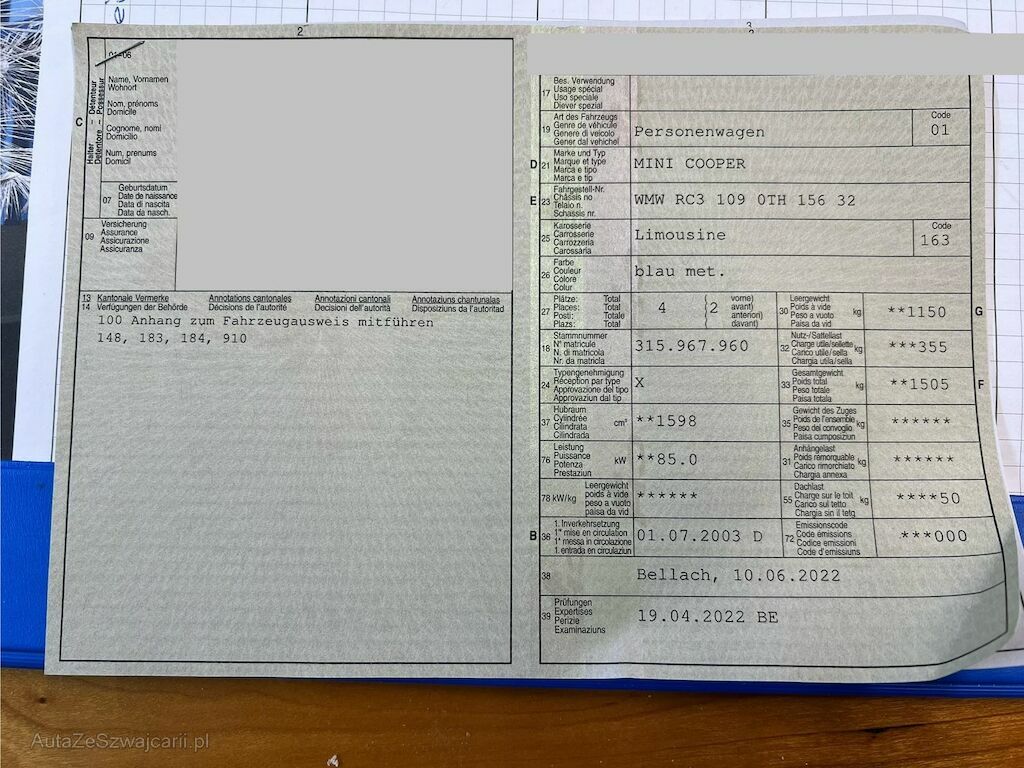 2
3
01-06
C
Halter – Détenteur
Detentore – Possessur
Name, Vornamen
Wohnort
Nom, prénoms
Domicile
Cognome, nomi
Domicilio
Num, prenums
Domicil
07
Geburtsdatum
Date de naissance
Data di nascita
Data da nasch.
09
Versicherung
Assurance
Assicurazione
Assicuranza
13 Kantonale Vermerke Annotations cantonales Annotazioni cantonali Annotaziuns chantunalas
14 Verfügungen der Behörde Décisions de l'autorité Decisioni dell'autorità Disposiziuns da l'autoritad
100 Anhang zum Fahrzeugausweis mitführen
148, 183, 184, 910
17
Bes. Verwendung
Usage spécial
Uso speciale
Diever spezial
19
Art des Fahrzeugs
Genre de véhicule
Genere di veicolo
Gener dal vehichel
Personenwagen
Code
01
D 21
Marke und Typ
Marque et type
Marca e tipo
Marca e tip
MINI COOPER
E 23
Fahrgestell-Nr.
Châssis no
Telaio n.
Schassis nr.
WMW RC3 109 0TH 156 32
25
Karosserie
Carrosserie
Carrozzeria
Carossaria
Limousine
Code
163
26
Farbe
Couleur
Colore
Colur
blau met.
27
Plätze: Total
Places: Total
Posti: Totale
Plazs: Total
4
2
vorne)
avant)
anteriori)
davant)
30
Leergewicht
Poids à vide
Peso a vuoto
Paisa da vid
kg
**1150
G
18
Stammnummer
N° matricule
N. di matricola
Nr. da matricla
315.967.960
32
Nutz-/Sattellast
Charge utile/sellette
Carico utile/sella
Chargia utila/sella
kg
***355
24
Typengenehmigung
Réception par type
Approvazione del tipo
Approvaziun dal tip
X
33
Gesamtgewicht
Poids total
Peso totale
Paisa totala
kg
**1505
F
37
Hubraum
Cylindrée
Cilindrata
Cilindrada
cm³
**1598
35
Gewicht des Zuges
Poids de l'ensemble
Peso del convoglio
Paisa cumposiziun
kg
******
76
Leistung
Puissance
Potenza
Prestaziun
kW
**85.0
31
Anhängelast
Poids remorquable
Carico rimorchiato
Chargia annexa
kg
******
78 kW/kg
Leergewicht
poids à vide
peso a vuoto
paisa da vid
******
55
Dachlast
Charge sur le toit
Carico sul tetto
Chargia sin il tetg
kg
****50
B 36
1. Inverkehrsetzung
1re mise en circulation
1a messa in circolazione
1. entrada en circulaziun
01.07.2003 D
72
Emissionscode
Code émissions
Codice emissioni
Code d'emissiuns
***000
38
Bellach, 10.06.2022
39
Prüfungen
Expertises
Perizie
Examinaziuns
19.04.2022 BE
AutaZeSzwajcarii.pl